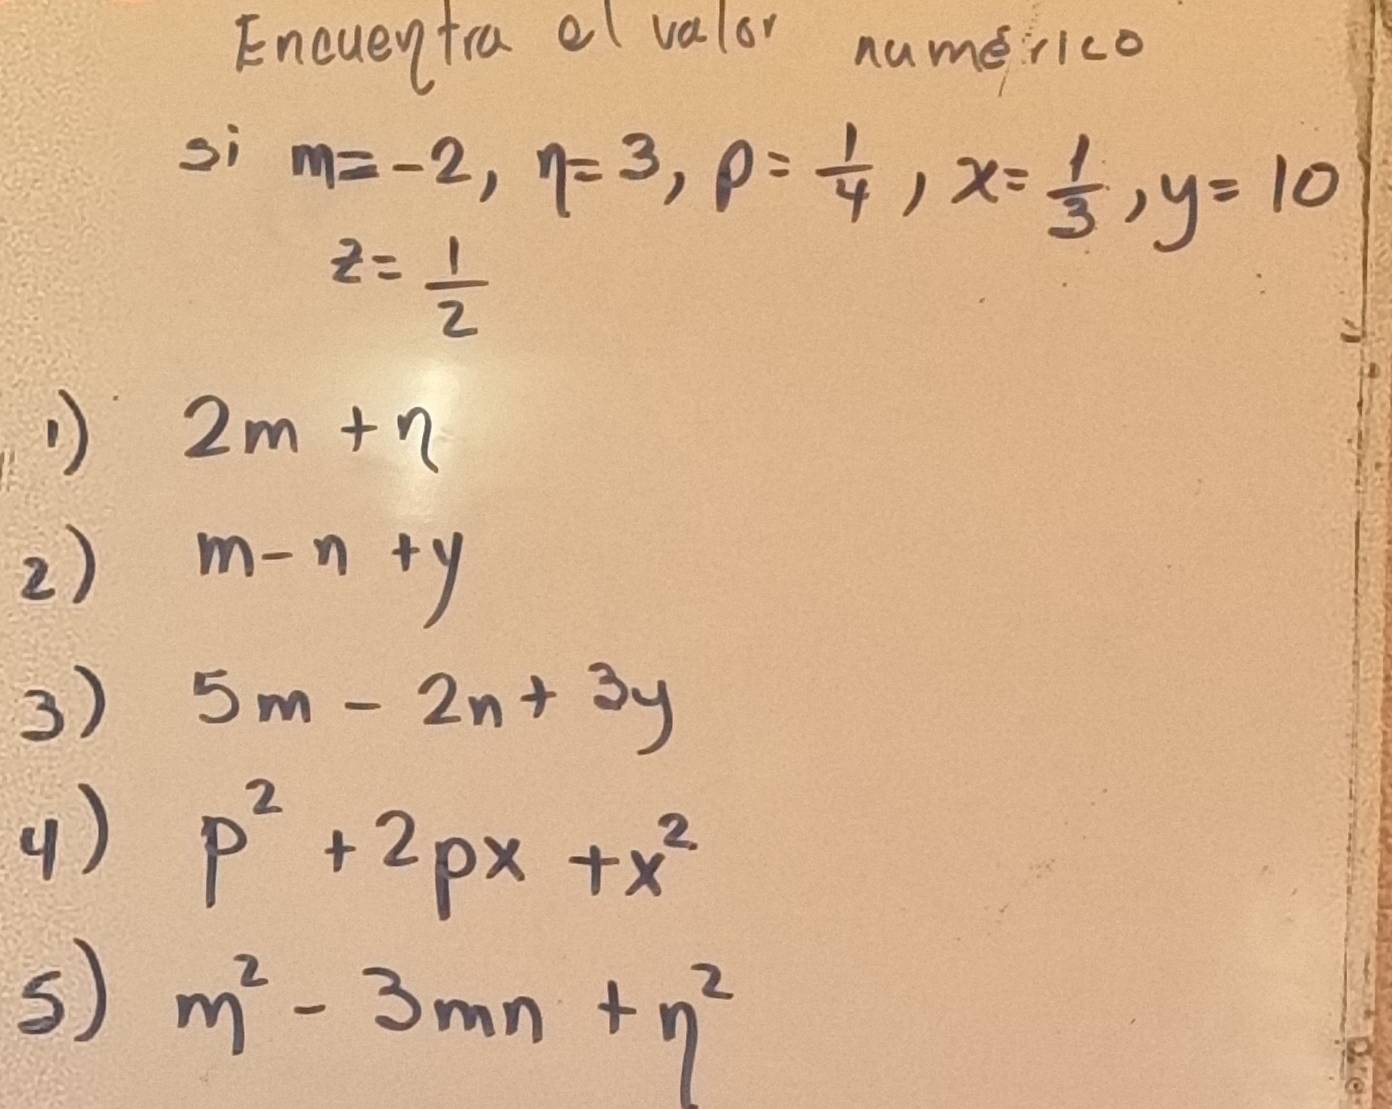 Encuentra el valor numérico
si m=-2, n=3, p=1/4, x=1/3, y=10
z=1/2
1) 2m +n
2) m-n +y
3) 5m - 2n + 3y
4) p² +2px +x²
5) m² - 3mn +n²